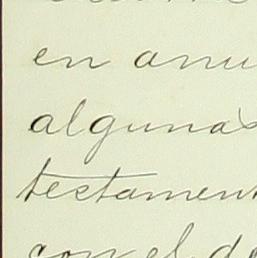 en anu
algunas
testament
con el de